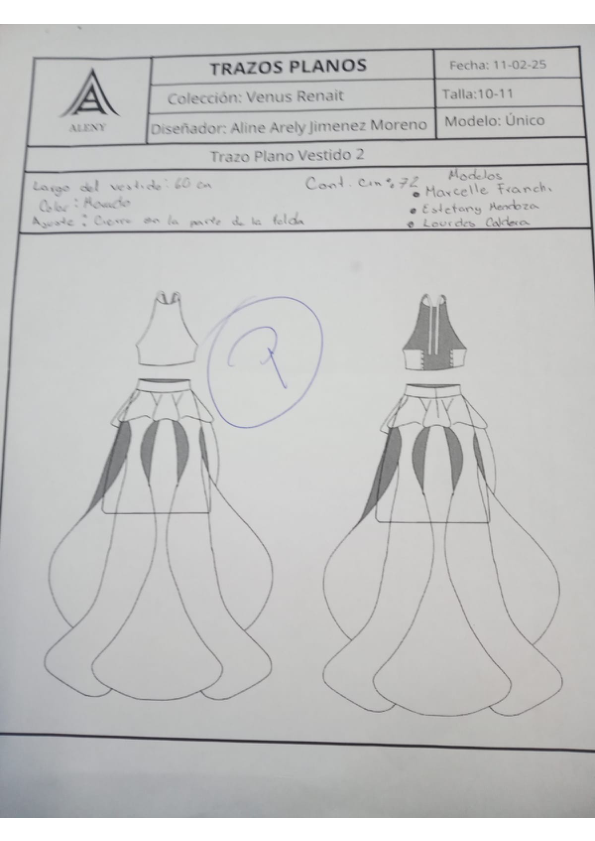 TRAZOS PLANOS
Fecha: 11-02-25
Colección: Venus Renait
Talla:10-11
ALENY
Diseñador: Aline Arely Jimenez Moreno
Modelo: Único
Trazo Plano Vestido 2
Largo del vestido: 60 cm
Color: Morado
Ajuste: Cierre en la parte de la falda
Cont. cm: 72
Modelos
• Marcelle Franch.
• Estefany Mendoza
• Lourdes Caldera